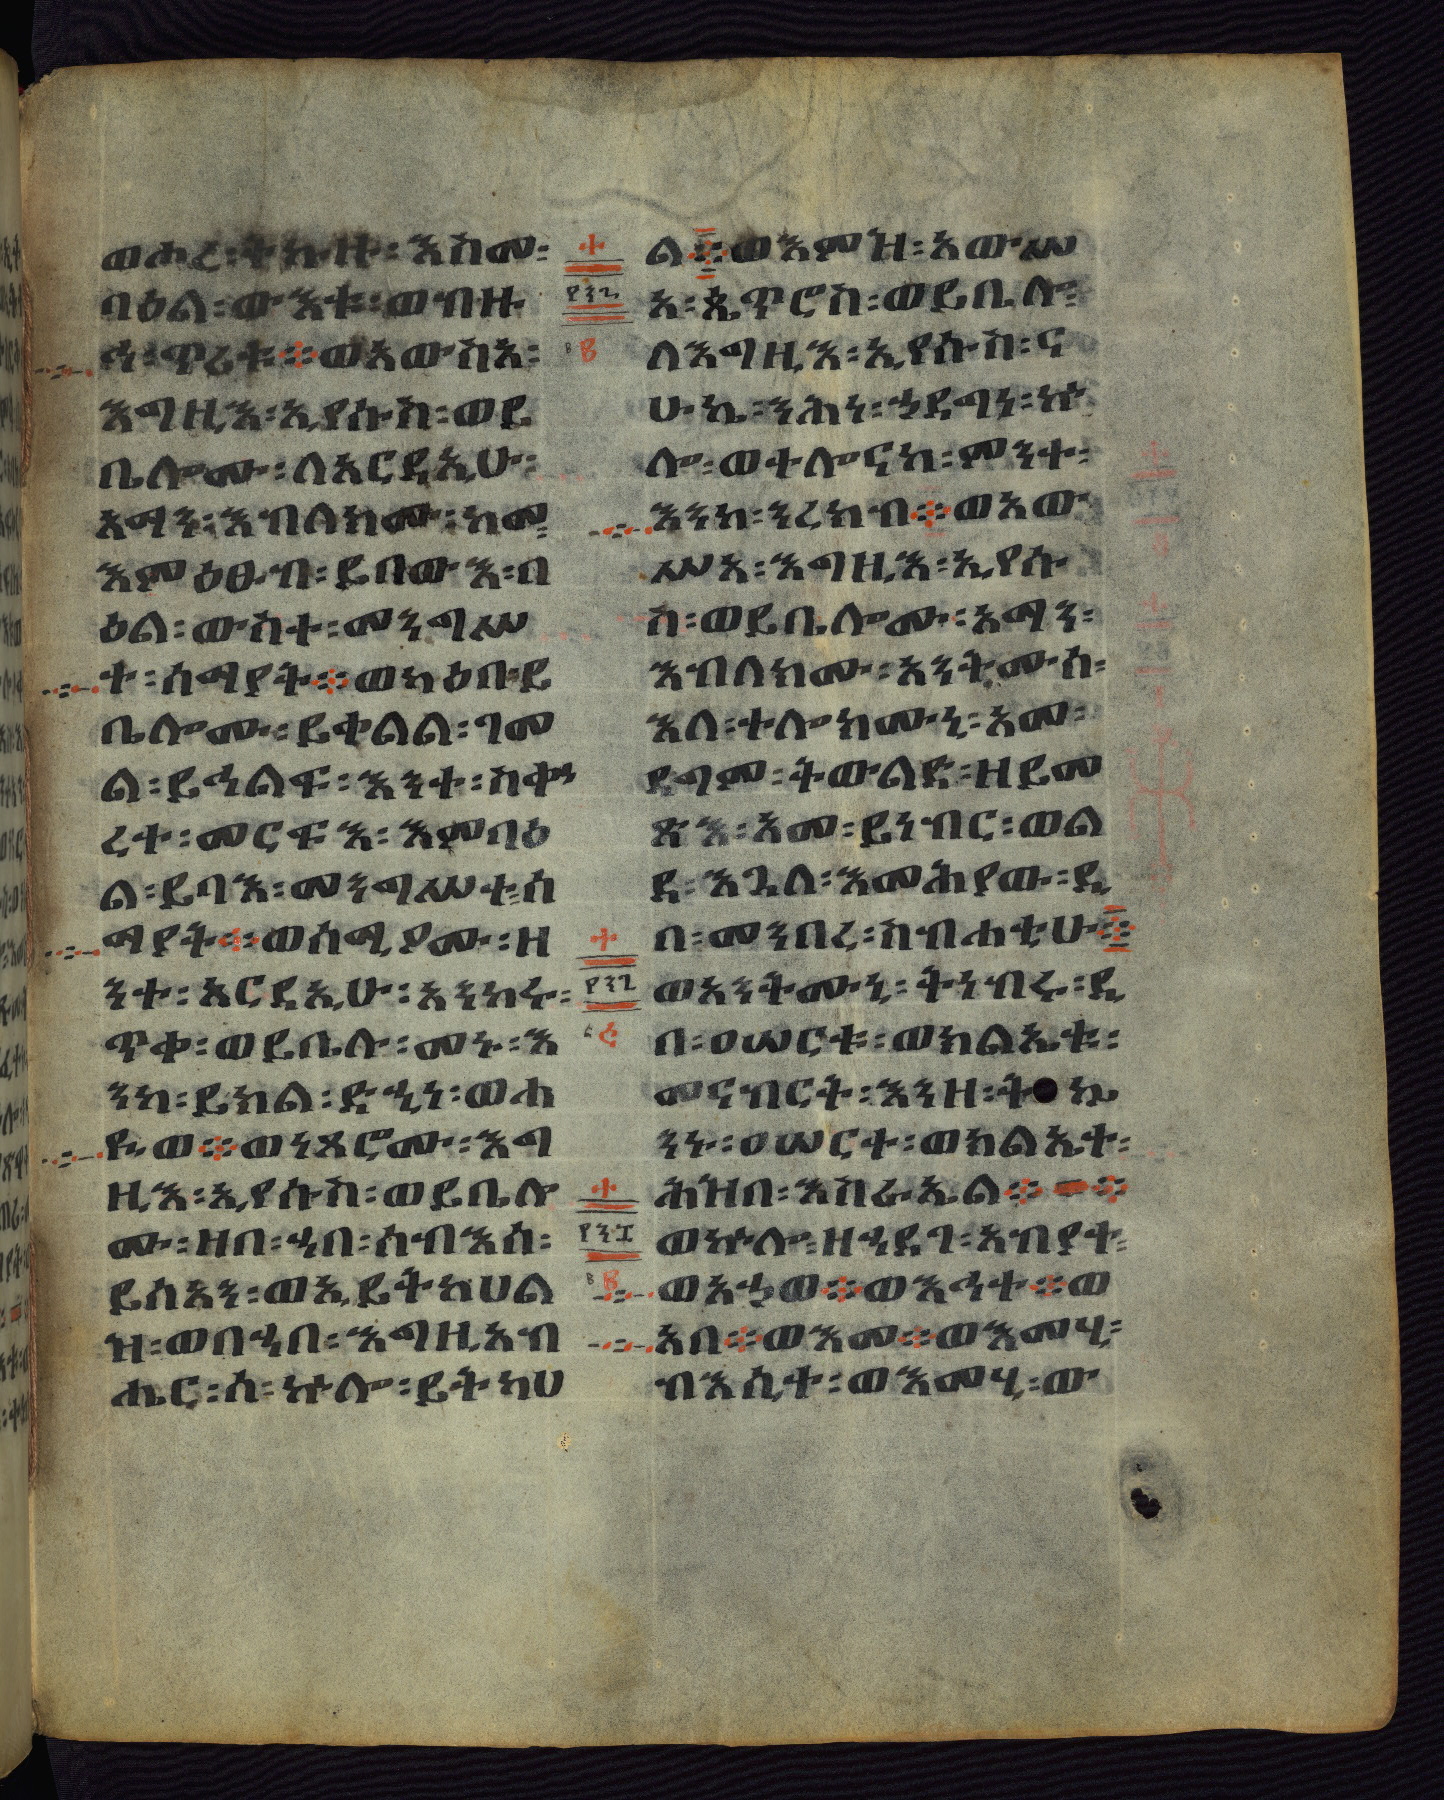 ወሐረ፡ትኩዙ፡እስመ፡
ባዕል፡ውእቱ፡ወብዙ
ኅ፡ጥሪቱ፨ወአውስአ፡
እግዚእ፡ኢየሱስ፡ወይ
ቤሎሙ፡ለአርዳኢሁ፡
አማን፡እብለክሙ፡ከመ፡
እምዕፁብ፡ይበውእ፡ባ
ዕል፡ውስተ፡መንግሥ
ተ፡ሰማያት፨ወካዕበ፡ይ
ቤሎሙ፡ይቀልል፡ገመ
ል፡ይኅልፍ፡እንተ፡ስቍ
ረተ፡መርፍእ፡እምባዕ
ል፡ይባእ፡መንግሥተ፡ሰ
ማያት፨ወሰሚዖሙ፡ዘ
ንተ፡አርዳኢሁ፡አንከሩ፡
ጥቀ፡ወይቤሉ፡መኑ፡እ
ንከ፡ይክል፡ድኂነ፡ወሐ
ዪወ፨ወነጸሮሙ፡እግ
ዚእ፡ኢየሱስ፡ወይቤሎ
ሙ፡ዘበ፡ኀበ፡ሰብእሰ፡
ይስአን፡ወኢይትከሀል
ዝ፡ወበኀበ፡እግዚአብ
ሔር፡ሰ፡ኵሎ፡ይትከሀ
ል፨ወእምዝ፡አውሥ
አ፡ጴጥሮስ፡ወይቤሎ፡
ለእግዚእ፡ኢየሱስ፡ና
ሁ፡ኬ፡ንሕነ፡ኃደግነ፡ኵ
ሎ፡ወተሎናከ፡ምንተ፡
እንከ፡ንረክብ፨ወአው
ሥአ፡እግዚእ፡ኢየሱ
ስ፡ወይቤሎሙ፡አማን፡
እብለክሙ፡አንትሙሰ፡
እለ፡ተሎክሙኒ፡አመ፡
ዳግመ፡ትውልድ፡ዘይመ
ጽእ፡አመ፡ይነብር፡ወል
ደ፡እጓለ፡እመሕያው፡ዲ
በ፡መንበረ፡ስብሐቲሁ፨
ወአንትሙኒ፡ትነብሩ፡ዲ
በ፡፲ወ፪ርቱ፡ወክልኤቱ፡
መናብርት፡እንዘ፡ትኴ
ንኑ፡ዐሠርተ፡ወክልኤተ፡
ሕዝበ፡እስራኤል፨
ወኵሎ፡ዘኀደገ፡አብያተ፡
ወአኃወ፨ወአኅተ፨ወ
አበ፨ወእመ፨ወእመሂ፡
ብእሲተ፡ወእመሂ፡ው
፻፺፪
፻፺፫
፻፺፬